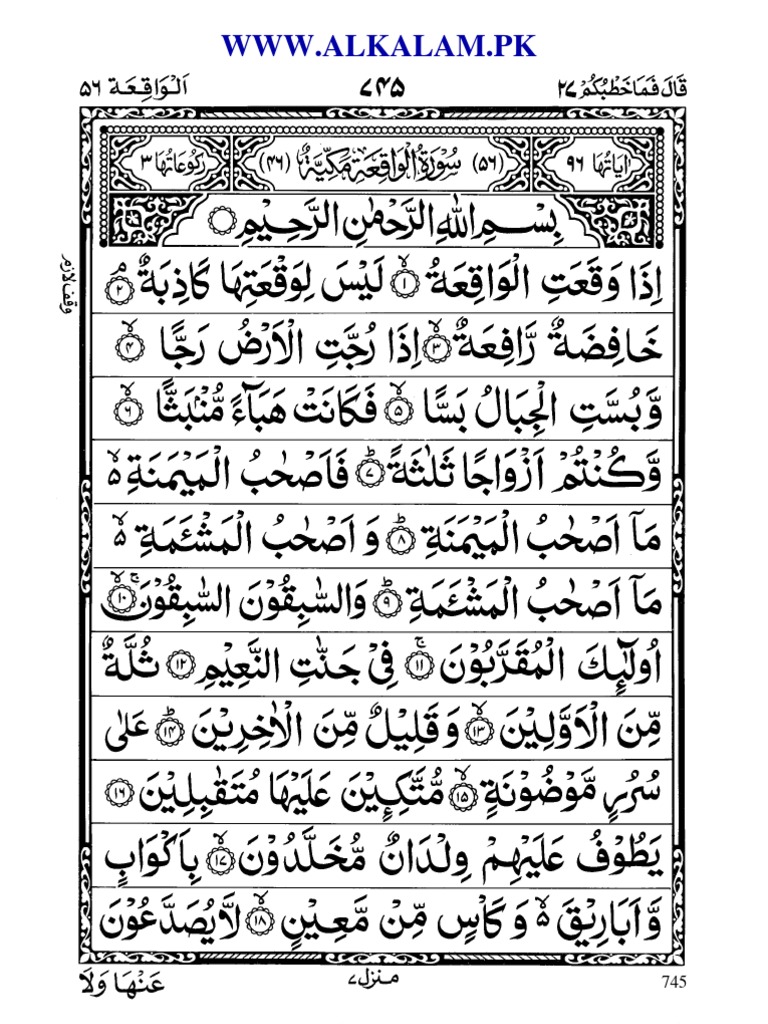 WWW.ALKALAM.PK
قَالَ فَمَا خَطْبُكُمْ ٢٧ ٧٤٥ اَلْوَاقِعَة ٥٦
اٰيَاتُهَا ٩٦ (٥٦) سُوْرَةُ الْوَاقِعَةِ مَكِّيَّةٌ (٤٦) رُكُوْعَاتُهَا ٣
بِسْمِ اللّٰهِ الرَّحْمٰنِ الرَّحِيْمِ
اِذَا وَقَعَتِ الْوَاقِعَةُ ۙ﴿١﴾ لَيْسَ لِوَقْعَتِهَا كَاذِبَةٌ ۘ﴿٢﴾
وقف لازم
خَافِضَةٌ رَّافِعَةٌ ۙ﴿٣﴾ اِذَا رُجَّتِ الْاَرْضُ رَجًّا ۙ﴿٤﴾
وَّبُسَّتِ الْجِبَالُ بَسًّا ۙ﴿٥﴾ فَكَانَتْ هَبَآءً مُّنْۢبَثًّا ۙ﴿٦﴾
وَّكُنْتُمْ اَزْوَاجًا ثَلٰثَةً ؕ﴿٧﴾ فَاَصْحٰبُ الْمَيْمَنَةِ ۬ۙ
مَاۤ اَصْحٰبُ الْمَيْمَنَةِ ؕ﴿٨﴾ وَ اَصْحٰبُ الْمَشْـَٔمَةِ ۬ۙ
مَاۤ اَصْحٰبُ الْمَشْـَٔمَةِ ؕ﴿٩﴾ وَالسّٰبِقُوْنَ السّٰبِقُوْنَ ۚۙ﴿١٠﴾
اُولٰٓئِكَ الْمُقَرَّبُوْنَ ۚ﴿١١﴾ فِيْ جَنّٰتِ النَّعِيْمِ ﴿١٢﴾ ثُلَّةٌ
مِّنَ الْاَوَّلِيْنَ ۙ﴿١٣﴾ وَقَلِيْلٌ مِّنَ الْاٰخِرِيْنَ ؕ﴿١٤﴾ عَلٰى
سُرُرٍ مَّوْضُوْنَةٍ ۙ﴿١٥﴾ مُّتَّكِـِٕيْنَ عَلَيْهَا مُتَقٰبِلِيْنَ ﴿١٦﴾
يَطُوْفُ عَلَيْهِمْ وِلْدَانٌ مُّخَلَّدُوْنَ ۙ﴿١٧﴾ بِاَكْوَابٍ
وَّاَبَارِيْقَ ۬ۙ وَكَاْسٍ مِّنْ مَّعِيْنٍ ۙ﴿١٨﴾ لَّا يُصَدَّعُوْنَ
745 منزل ٧ عَنْهَا وَلَا